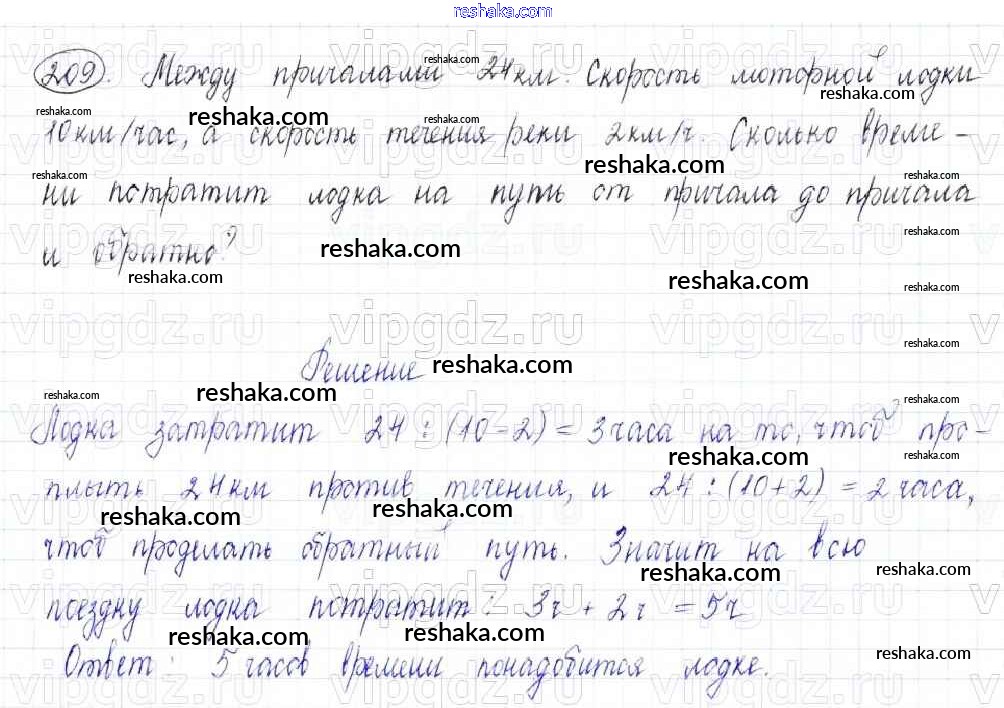 reshaka.com
209. Между причалами 24 км. Скорость моторной лодки
10 км/час, а скорость течения реки 2 км/ч. Сколько време-
ни потратит лодка на путь от причала до причала
и обратно?
Решение
Лодка затратит 24 : (10 - 2) = 3 часа на то, чтоб про-
плыть 24 км против течения, и 24 : (10 + 2) = 2 часа,
чтоб проделать обратный путь. Значит на всю
поездку лодка потратит: 3ч + 2ч = 5ч
Ответ: 5 часов времени понадобится лодке.